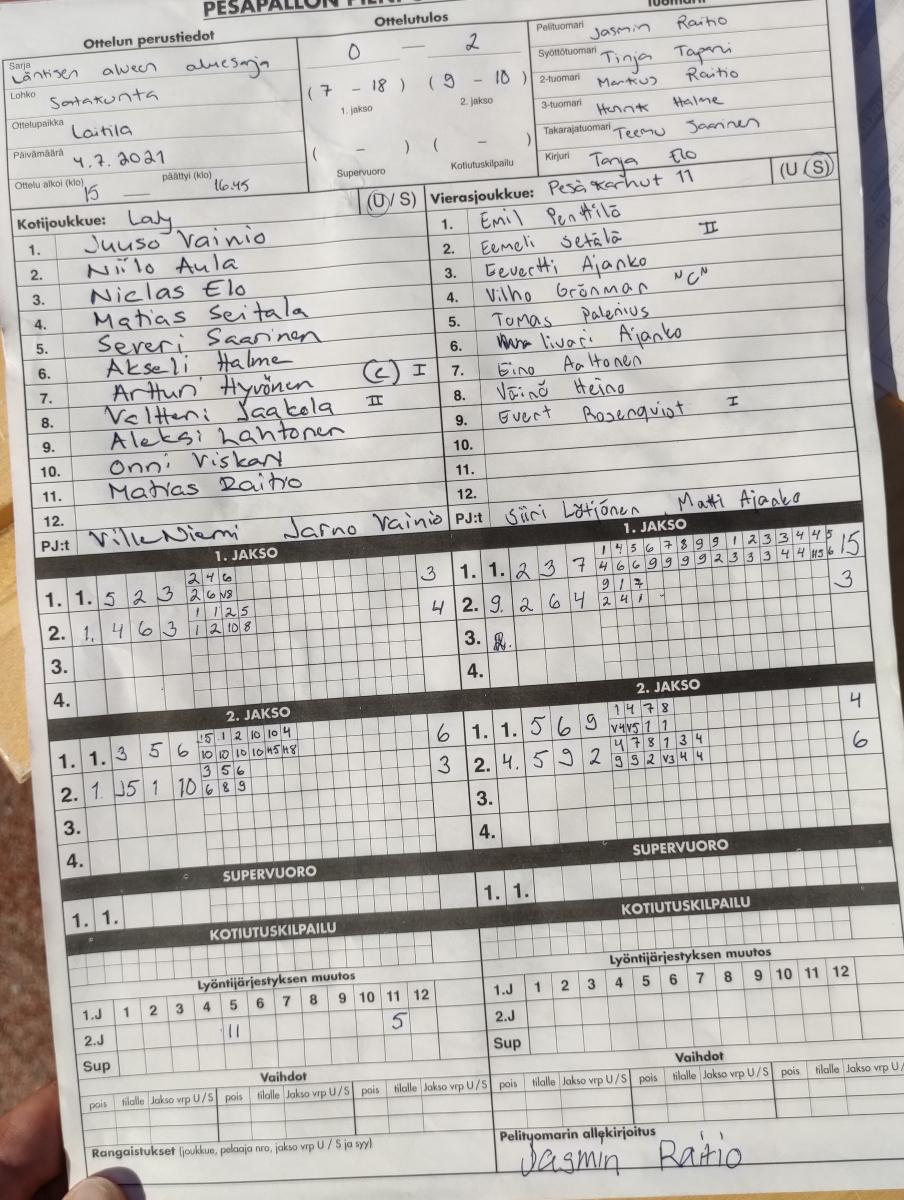 PESÄPALLON
Ottelun perustiedot
Ottelutulos
Sarja
Läntisen alueen aluesarja
Lohko Satakunta
Ottelupaikka Laitila
Päivämäärä 4.7.2021
Ottelu alkoi (klo) 15 — päättyi (klo) 16.45
0 — 2
( 7 - 18 ) ( 9 - 10 )
1. jakso 2. jakso
( - ) ( - )
Supervuoro Kotiutuskilpailu
Pelituomari Jasmin Raitio
Syöttötuomari Tinja Tapani
2-tuomari Markus Raitio
3-tuomari Henrik Halme
Takarajatuomari Teemu Saarinen
Kirjuri Tanja Elo
Kotijoukkue: LaJy (U/S)
1. Juuso Vainio
2. Niilo Aula
3. Niclas Elo
4. Matias Seitala
5. Severi Saarinen
6. Akseli Halme
7. Artturi Hyvönen (C) I
8. Valtteri Jaakola II
9. Aleksi Lahtonen
10. Onni Viskari
11. Matias Raitio
12.
PJ:t Ville Niemi Jarno Vainio
Vierasjoukkue: Pesäkarhut 11 (U/S)
1. Emil Penttilä
2. Eemeli Setälä II
3. Eevertti Ajanko
4. Vilho Grönman "C"
5. Tomas Palenius
6. Iivari Ajanko
7. Eino Aaltonen
8. Väinö Heino
9. Evert Rosenqvist I
10.
11.
12.
PJ:t Siiri Lötjönen, Matti Ajanko
1. JAKSO
2 4 6
1. 1. 5 2 3 2 6 v8 3
1 1 2 5
2. 1. 4 6 3 1 2 10 8 4
3.
4.
1. JAKSO
1 4 5 6 7 8 9 9 1 2 3 3 4 4 5
1. 1. 2 3 7 4 6 6 9 9 9 9 2 3 3 3 4 4 H5 6 15
9 1 7
2. 9. 2 6 4 2 4 1 3
3.
4.
2. JAKSO
5 1 2 10 10 4
1. 1. 3 5 6 10 10 10 10 H5 H8 6
3 5 6
2. 1. J5 1 10 6 8 9 3
3.
4.
2. JAKSO
1 4 7 8
1. 1. 5 6 9 v4 v5 1 1 4
4 7 8 1 3 4
2. 4. 5 9 2 9 9 2 v3 4 4 6
3.
4.
SUPERVUORO
1. 1.
SUPERVUORO
1. 1.
KOTIUTUSKILPAILU
KOTIUTUSKILPAILU
Lyöntijärjestyksen muutos
1.J 1 2 3 4 5 6 7 8 9 10 11 12
2.J 11 5
Sup
Lyöntijärjestyksen muutos
1.J 1 2 3 4 5 6 7 8 9 10 11 12
2.J
Sup
Vaihdot
pois tilalle Jakso vrp U/S pois tilalle Jakso vrp U/S pois tilalle Jakso vrp U/S
Vaihdot
pois tilalle Jakso vrp U/S pois tilalle Jakso vrp U/S pois tilalle Jakso vrp U/
Rangaistukset (joukkue, pelaaja nro, jakso vrp U / S ja syy)
Pelituomarin allekirjoitus
Jasmin Raitio